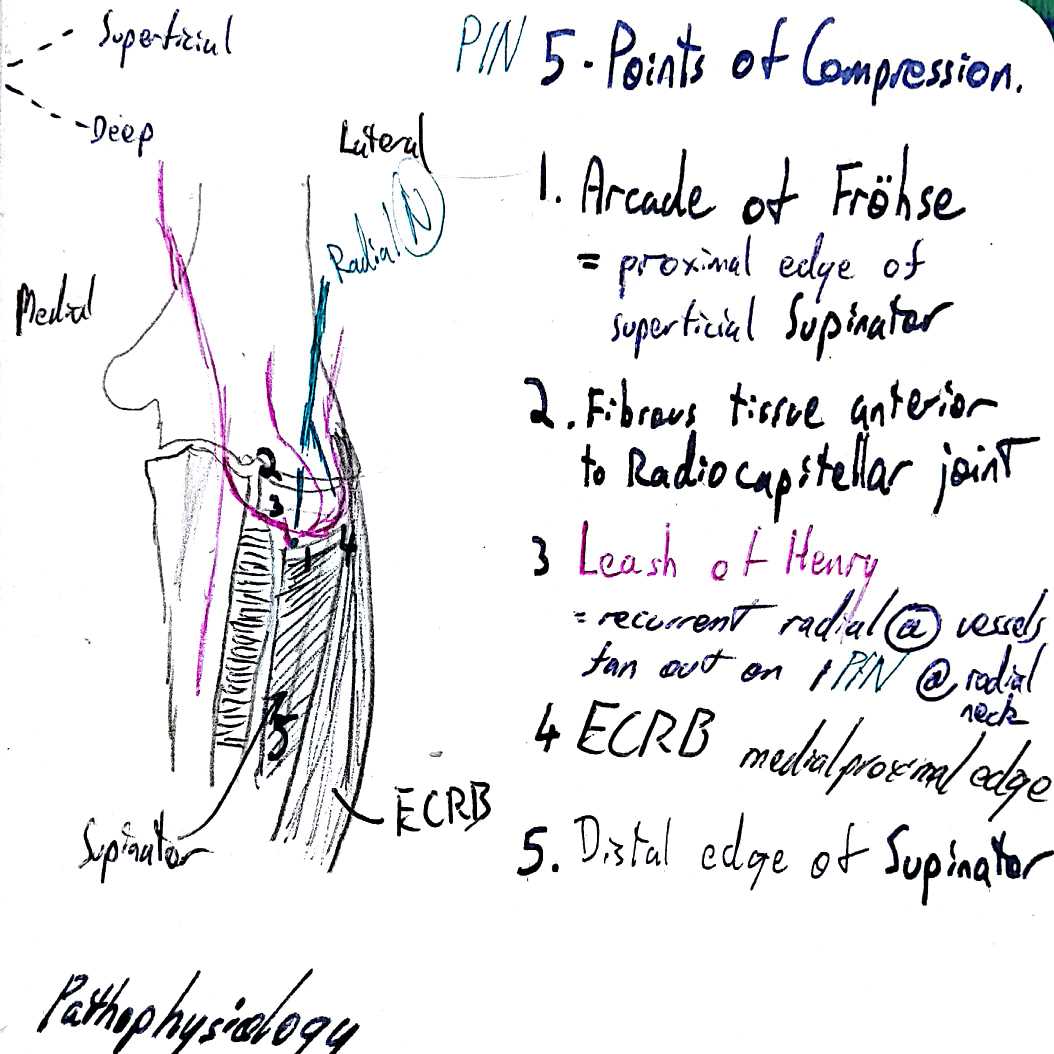 Superficial
Deep
Lateral
Radial N
Medial
2
3
1
4
5
ECRB
Supinator
PIN 5 - Points of Compression.
1. Arcade of Fröhse
= proximal edge of
superficial Supinator
2. Fibrous tissue anterior
to Radiocapitellar joint
3 Leash of Henry
= recurrent radial ⓐ vessels
fan out on PIN @ radial
neck
4 ECRB medial proximal edge
5. Distal edge of Supinator
Pathophysiology